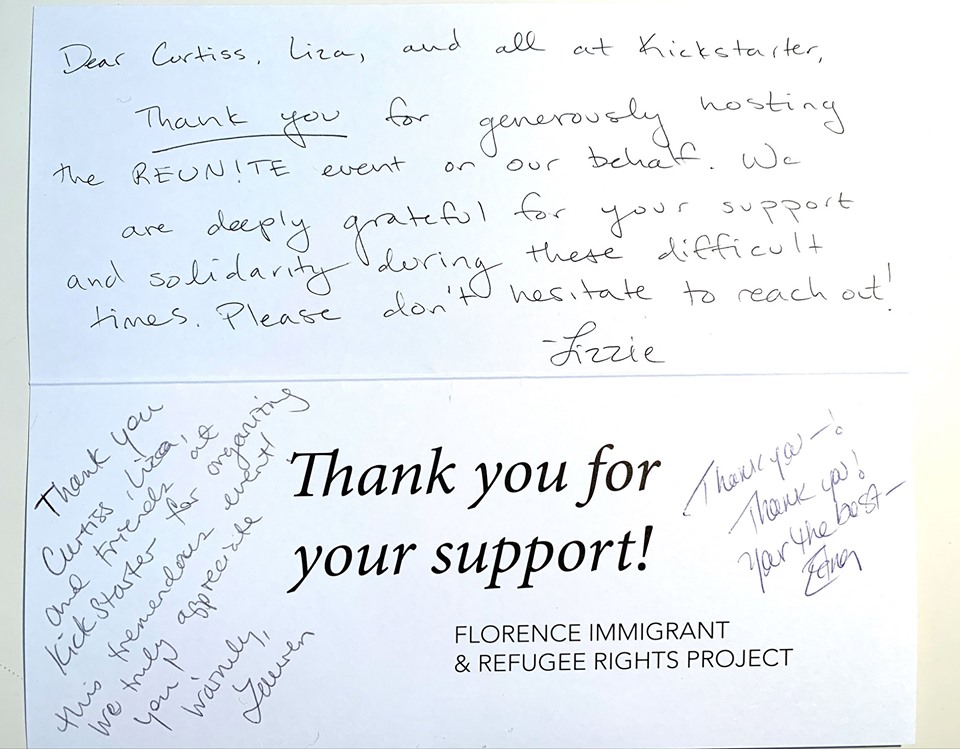 Dear Curtiss, Liza, and all at Kickstarter,
Thank you for generously hosting
the REUN!TE event on our behalf. We
are deeply grateful for your support
and solidarity during these difficult
times. Please don't hesitate to reach out!
-Lizzie
Thank you
Curtiss, Liza,
and friends at
KickStarter for organizing
this tremendous event!
We truly appreciate
you!
Warmly,
Lauren
Thank you for
your support!
FLORENCE IMMIGRANT
& REFUGEE RIGHTS PROJECT
Thank you—!
Thank you!
Your the best—